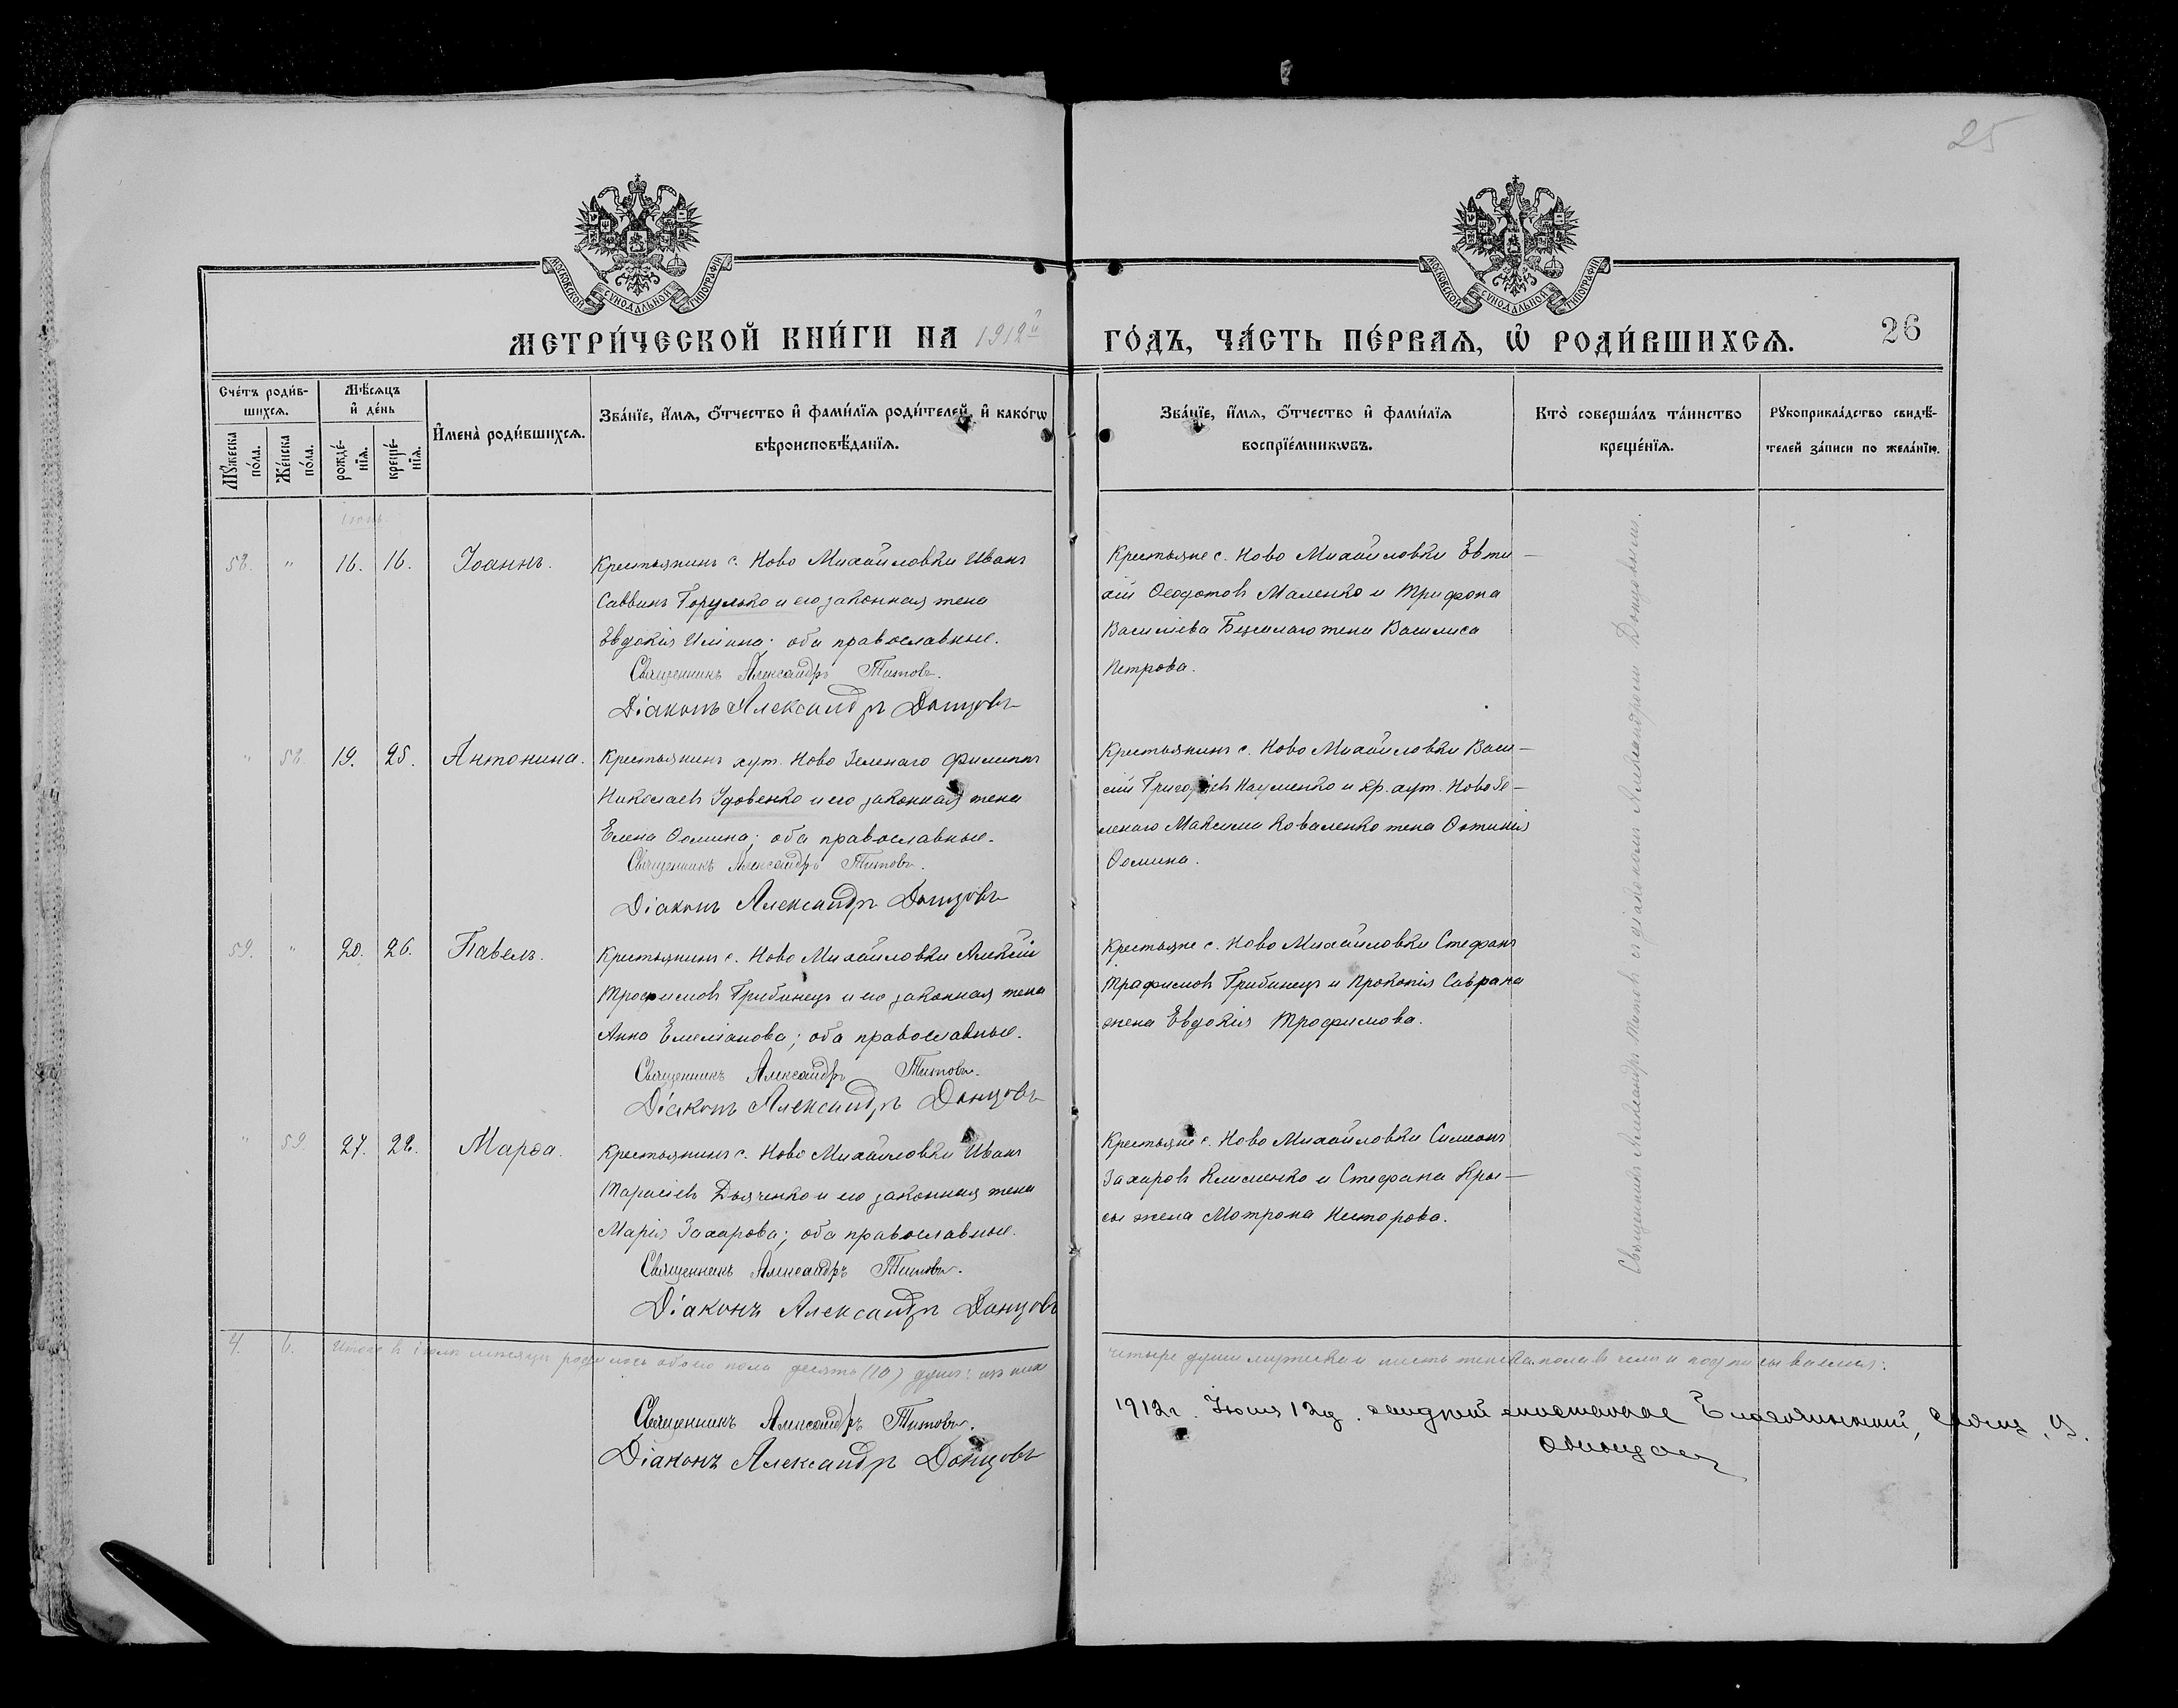 25
МОСКОВСКОЙ СѴНОДАЛЬНОЙ ТИПОГРАФІИ
МОСКОВСКОЙ СѴНОДАЛЬНОЙ ТИПОГРАФІИ
МЕТРИ́ЧЕСКОЙ КНИ́ГИ НА 1912й ГО́ДЪ, ЧА́СТЬ ПЕ́РВАѦ, Ѽ РОДИ́ВШИХСѦ. 26
Сче́тъ роди́в-
шихсѧ.
Мꙋ́жеска по́ла.
Же́нска по́ла.
Мѣ́сѧцъ и҆ де́нь
рожде́-
нїѧ.
креще́-
нїѧ.
И҆мена̀ роди́вшихсѧ.
Зва́нїе, и҆́мѧ, ѻ҆́тчество и҆ фами́лїѧ роди́телей, и҆ како́гѡ
вѣроисповѣ́данїѧ.
Зва́нїе, и҆́мѧ, ѻ҆́тчество и҆ фами́лїѧ
воспрїе́мникѡвъ.
Кто̀ соверша́лъ та́инство
креще́нїѧ.
Рꙋкоприкла́дство свидѣ́-
телей за́писи по жела́нїю.
58. " 16. 16. Іоаннъ.
Крестьянинъ с. Ново Михайловки Иванъ
Саввинъ Горулько и его законная жена
Евдокія Иліина; оба православные.
Священникъ Александръ Титовъ.
Діаконъ Александръ Донцовъ
Крестьяне с. Ново Михайловки Евти-
хій Ѳеодотовъ Маленко и Трифона
Василіева жена Василиса
Петрова.
" 58. 19. 25. Антонина.
Крестьянинъ хут. Ново Зеленаго Филиппъ
Николаевъ Удовенко и его законная жена
Елена Ѳомина; оба православные.
Священникъ Александръ Титовъ.
Діаконъ Александръ Донцовъ
Крестьянинъ с. Ново Михайловки Васи-
лій Григорьевъ Науменко и кр. хут. Ново Зе-
ленаго Максима Коваленко жена
Ѳомина.
59. " 20. 26. Павелъ.
Крестьянинъ с. Ново Михайловки Алексій
Трофимовъ Грибинецъ и его законная жена
Анна Емеліанова; оба православные.
Священникъ Александръ Титовъ.
Діаконъ Александръ Донцовъ
Крестьяне с. Ново Михайловки Стефанъ
Трафимовъ Грибинецъ и Прокопія Саврана
жена Евдокія Трофимова.
" 59 27. 28. Марѳа.
Крестьянинъ с. Ново Михайловки Иванъ
Тарасіевъ Дьяченко и его законная жена
Марія Захарова; оба православные.
Священникъ Александръ Титовъ.
Діаконъ Александръ Донцовъ
Крестьяне с. Ново Михайловки Симеонъ
Захаровъ Клименко и Стефана Кры-
сы жена Мотрона Несторова.
Священникъ Александръ Титовъ съ діакономъ Александромъ Донцовымъ.
4. 6. Итого въ іюнѣ мѣсяцѣ родилось обоего пола десять (10) душъ: изъ нихъ
четыре души мужеска и шесть женска пола въ чемъ и подписываемся:
Священникъ Александръ Титовъ.
Діаконъ Александръ Донцовъ
1912г. Іюля 12д. Благочинный, Свящ.